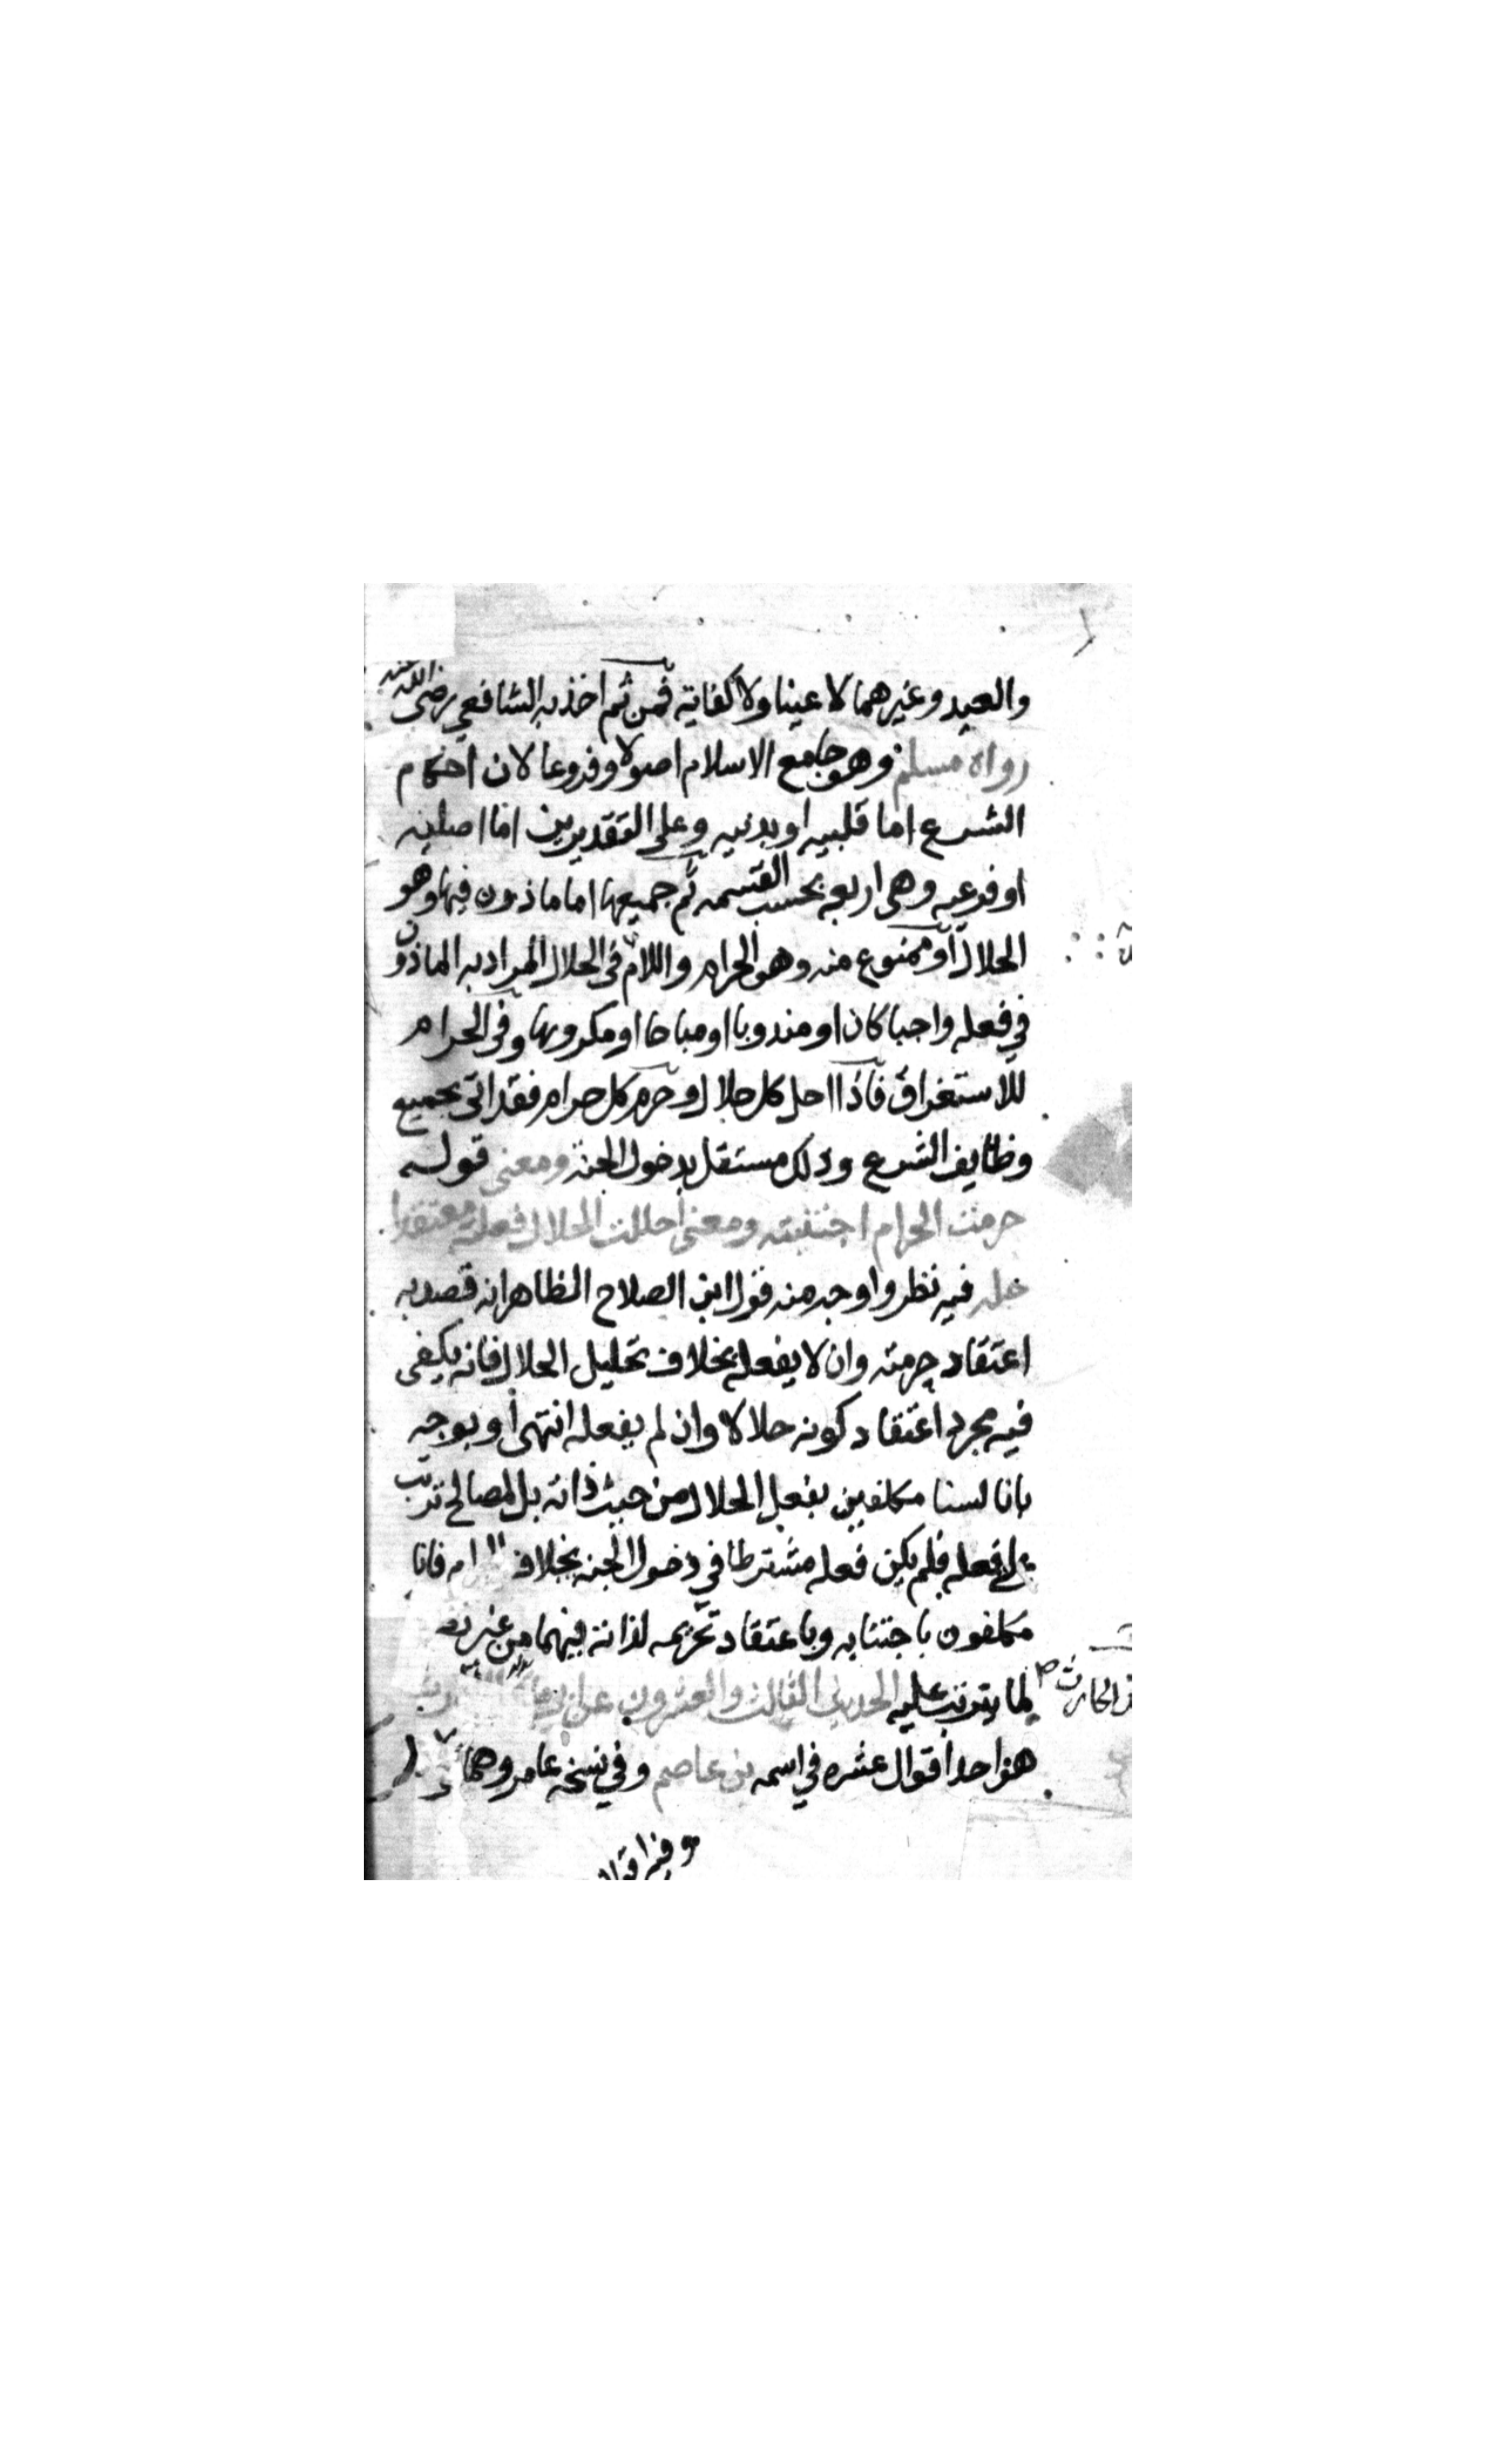 والعيد وغيرهما لا عينا ولا كفاية فمن ثم اخذ به الشافعي رضي الله عنه
رواه مسلم وهو جامع الاسلام اصولا وفروعا لان احكام
الشرع اما قلبيه او بدنيه وعلى التقديرين اما اصليه
او فرعيه وهي اربعه بحسب القسمه ثم جميعها اما ماذون فيها وهو
الحلال او ممنوع منه وهو الحرام واللام في الحلال المراد به الماذون
في فعله واجبا كان او مندوبا او مباحا او مكروها وفي الحرام
للاستغراق فاذا احل كل حلال وحرم كل حرام فقد اتى بجميع
وظايف الشرع وذلك مستقل بدخول الجنه ومعنى قوله
حرمت الحرام اجتنبته ومعنى احللت الحلال فعلته معتقدا
حله فيه نظر واوجه منه قول ابن الصلاح الظاهر انه قصد به
اعتقاد حرمته وان لا يفعله بخلاف تحليل الحلال فانه يكفى
فيه مجرد اعتقاد كونه حلالا وان لم يفعله انتهى ويوجه
بانا لسنا مكلفين بفعل الحلال من حيث ذاته بل لمصالح ترتب
على فعله فلم يكن فعله مشترطا في دخول الجنه بخلاف الحرام فانا
مكلفون باجتنابه وباعتقاد تحريمه لذاته فيهما من غير نظر
لما يترتب عليه الحديث الثالث والعشرون عن ابي مالك
الحارث
هذا احد اقوال عشره في اسمه بن عاصم وفي نسخه عامر وهما